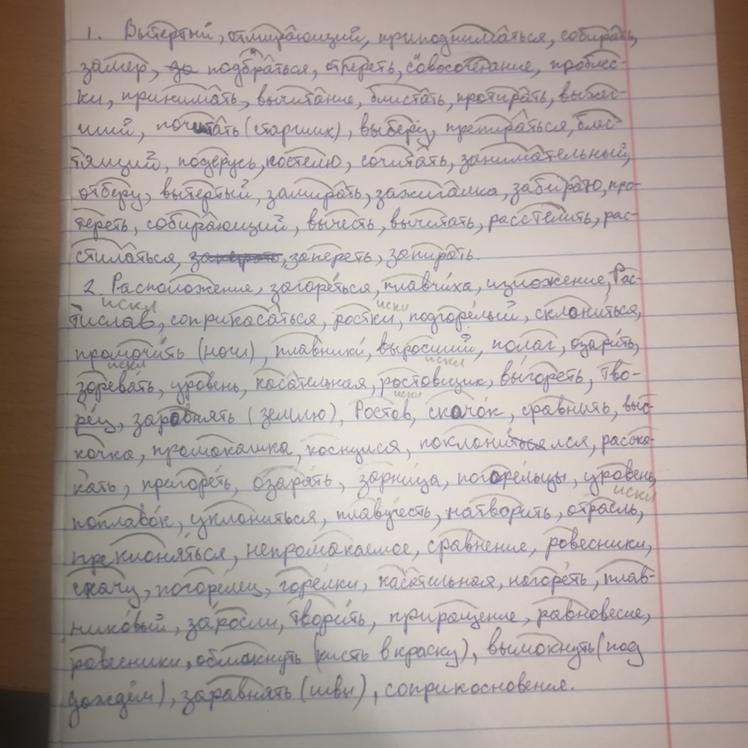 1. Вытертый, отмирающий, приподниматься, собирать,
замер, подбраться, отпереть, словосочетание, проблес-
ки, принимать, вычитание, блистать, протирать, выжег-
ший, почитать (старших), выберу, препираться, блес-
тящий, подерусь, постелю, сочитать, занимательный,
отберу, вытертый, замирать, зажигалка, забираю, про-
тереть, собирающий, вычесть, вычитать, расстелить, рас-
стилаться, запереть, запирать.
2. Расположение, загореться, плавчиха, изложение, Рас-
искл искл
тислав, соприкасаться, ростки, подгорелый, склониться,
промочить (ноги), плавники, выросший, полог, озарить,
искл искл
зоревать, уровень, касательная, ростовщик, выгореть, тво-
искл
рец, заровнять (землю), Ростов, скачок, сравнить, выс-
кочка, промокашка, коснулся, поклонился, расска-
кать, пригореть, озарять, зарница, погорельцы, уровень,
искл
поплавок, уклониться, плавучесть, натворить, отрасль,
преклоняться, непромокаемое, сравнение, ровесники,
скачу, погорелец, горелки, касательная, нагореть, плав-
никовый, заросли, творить, приращение, равновесие,
ровесники, обмокнуть (кисть в краску), вымокнуть (под
дождём), заравнять (швы), соприкосновение.